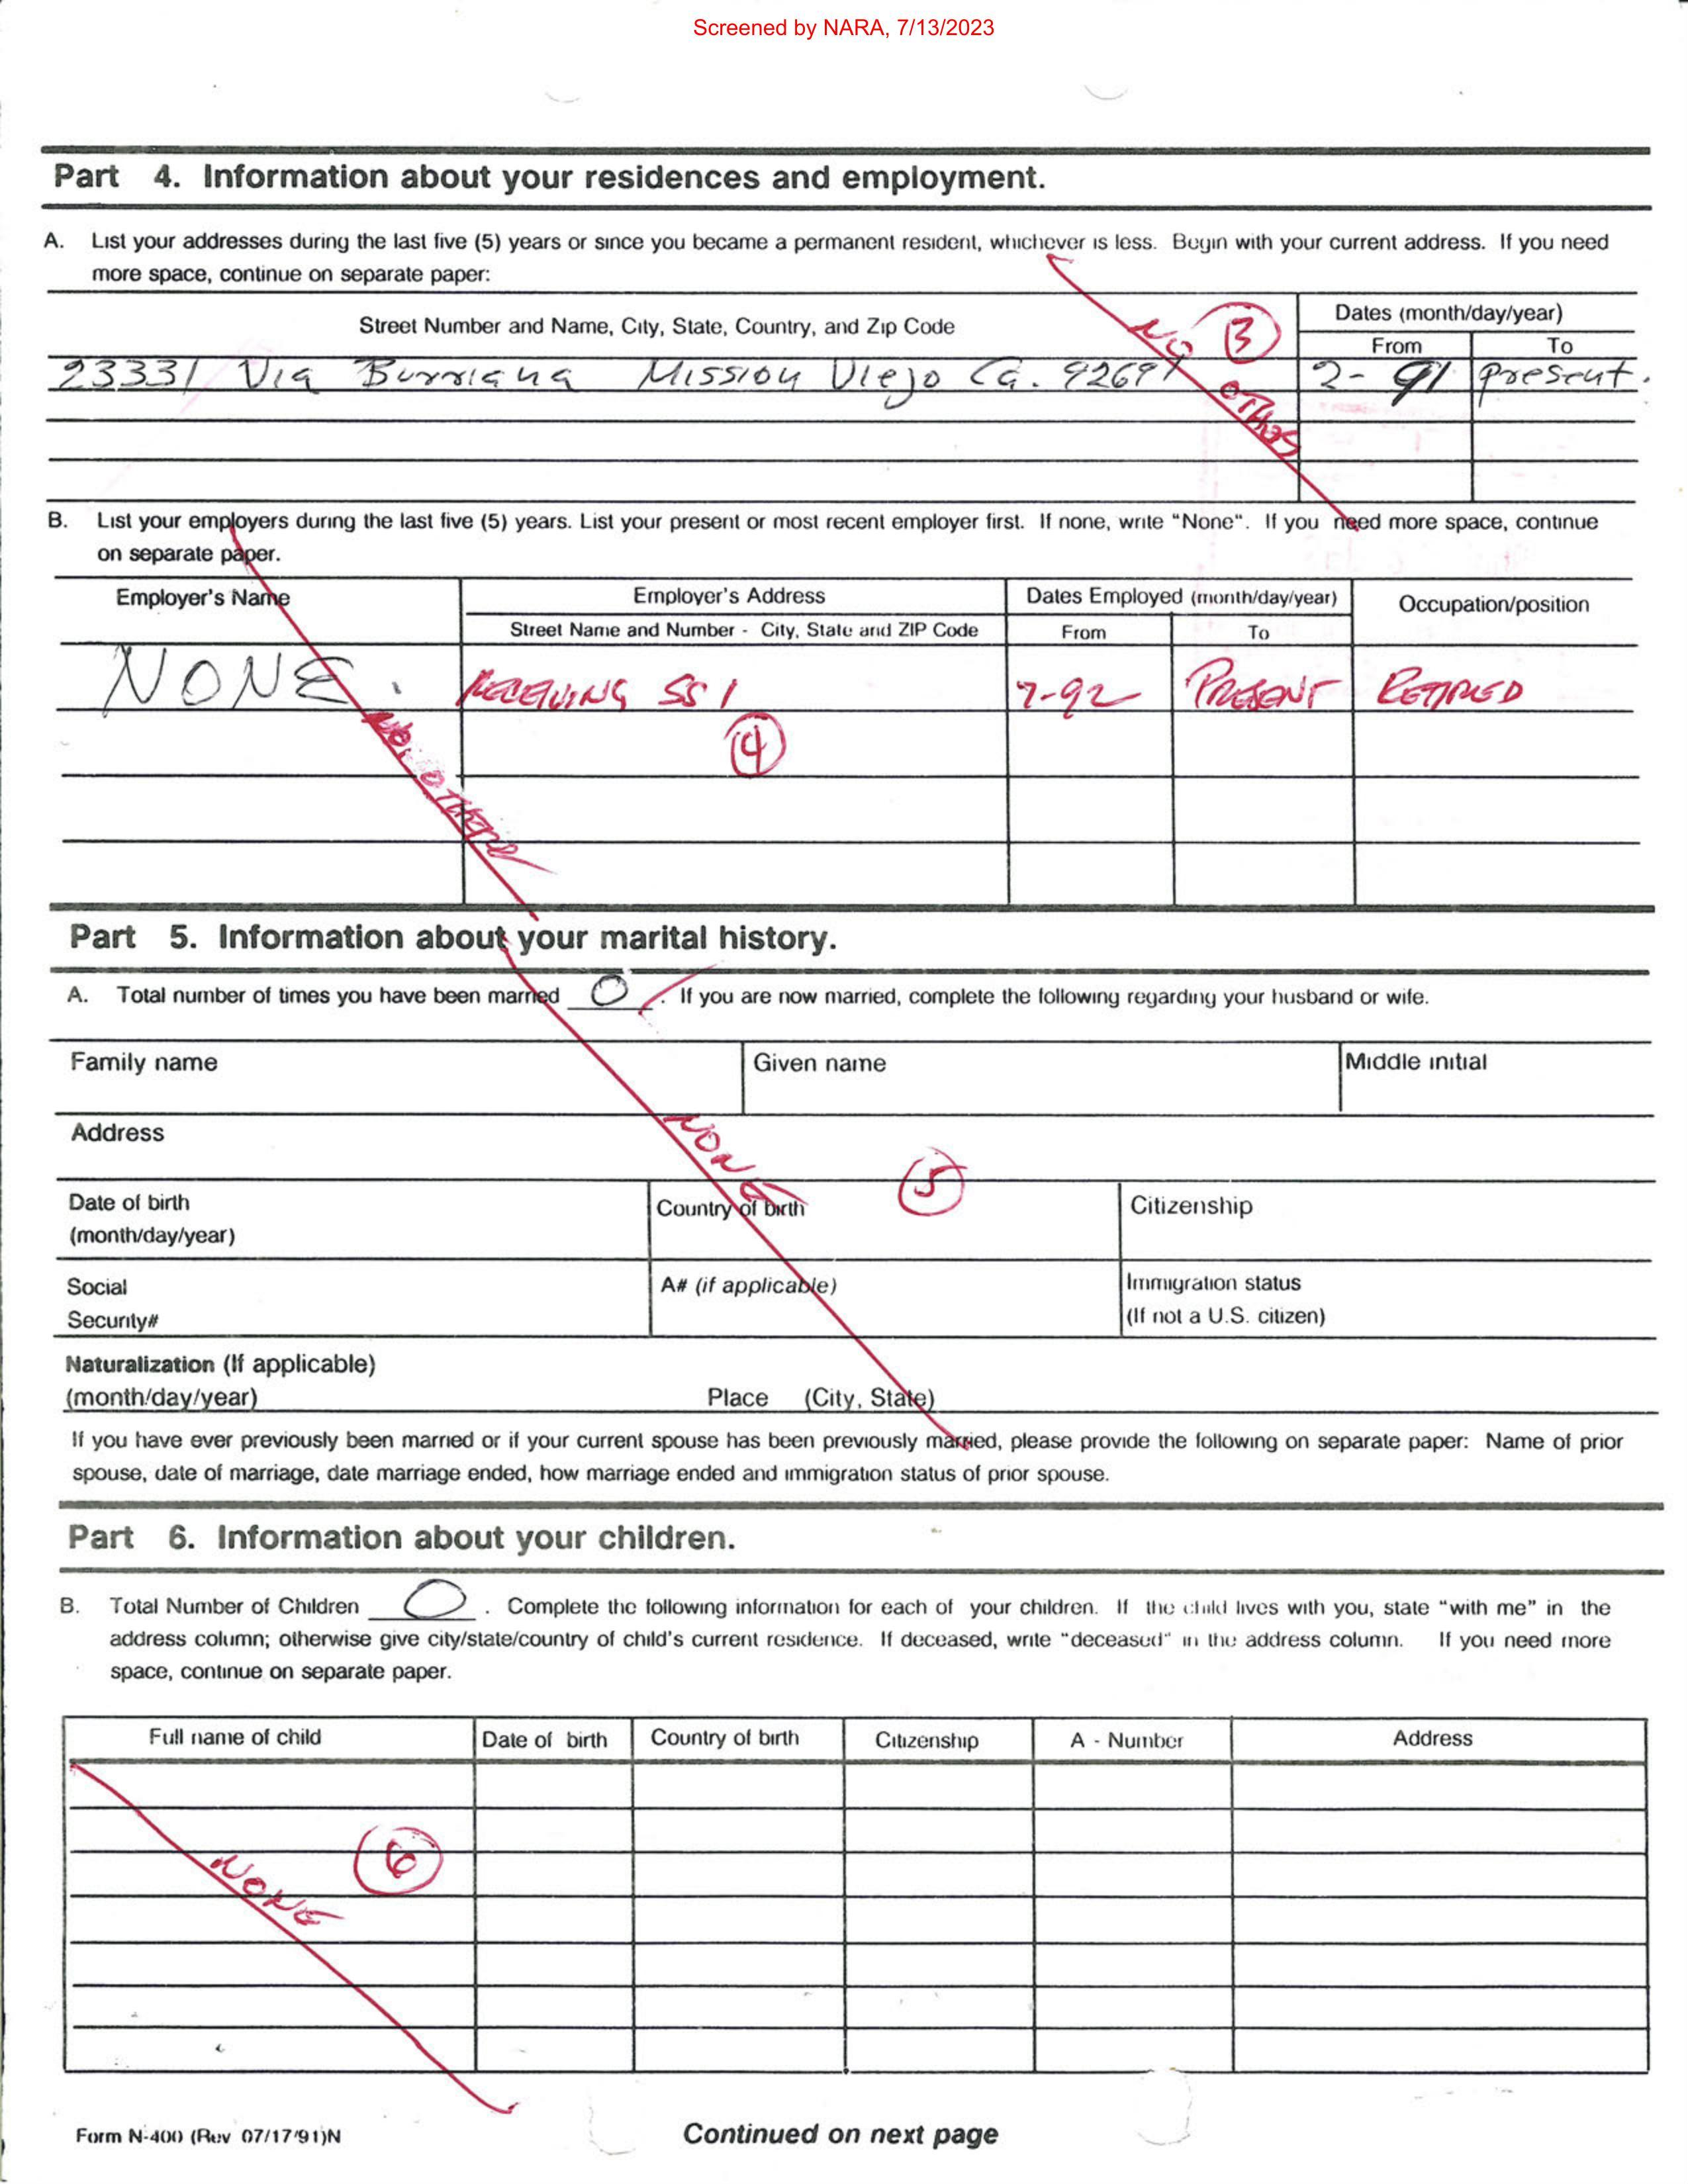 Screened by NARA, 7/13/2023
Part 4. Information about your residences and employment.
A. List your addresses during the last five (5) years or since you became a permanent resident, whichever is less. Begin with your current address. If you need
more space, continue on separate paper:
Street Number and Name, City, State, Country, and Zip Code
Dates (month/day/year)
From To
23331 Via Burriana Mission Viejo Ca. 92691 2-91 present.
NO OTHER
3
B. List your employers during the last five (5) years. List your present or most recent employer first. If none, write "None". If you need more space, continue
on separate paper.
Employer's Name Employer's Address Dates Employed (month/day/year) Occupation/position
Street Name and Number - City, State and ZIP Code From To
NONE. RECEIVING SSI 7-92 PRESENT RETIRED
4
NO OTHER
Part 5. Information about your marital history.
A. Total number of times you have been married 0. If you are now married, complete the following regarding your husband or wife.
Family name Given name Middle initial
Address
NONE
5
Date of birth
(month/day/year)
Country of birth Citizenship
Social
Security#
A# (if applicable)
Immigration status
(If not a U.S. citizen)
Naturalization (If applicable)
(month/day/year) Place (City, State)
If you have ever previously been married or if your current spouse has been previously married, please provide the following on separate paper: Name of prior
spouse, date of marriage, date marriage ended, how marriage ended and immigration status of prior spouse.
Part 6. Information about your children.
B. Total Number of Children 0. Complete the following information for each of your children. If the child lives with you, state "with me" in the
address column; otherwise give city/state/country of child's current residence. If deceased, write "deceased" in the address column. If you need more
space, continue on separate paper.
Full name of child Date of birth Country of birth Citizenship A - Number Address
NONE
6
Form N-400 (Rev 07/17/91)N Continued on next page